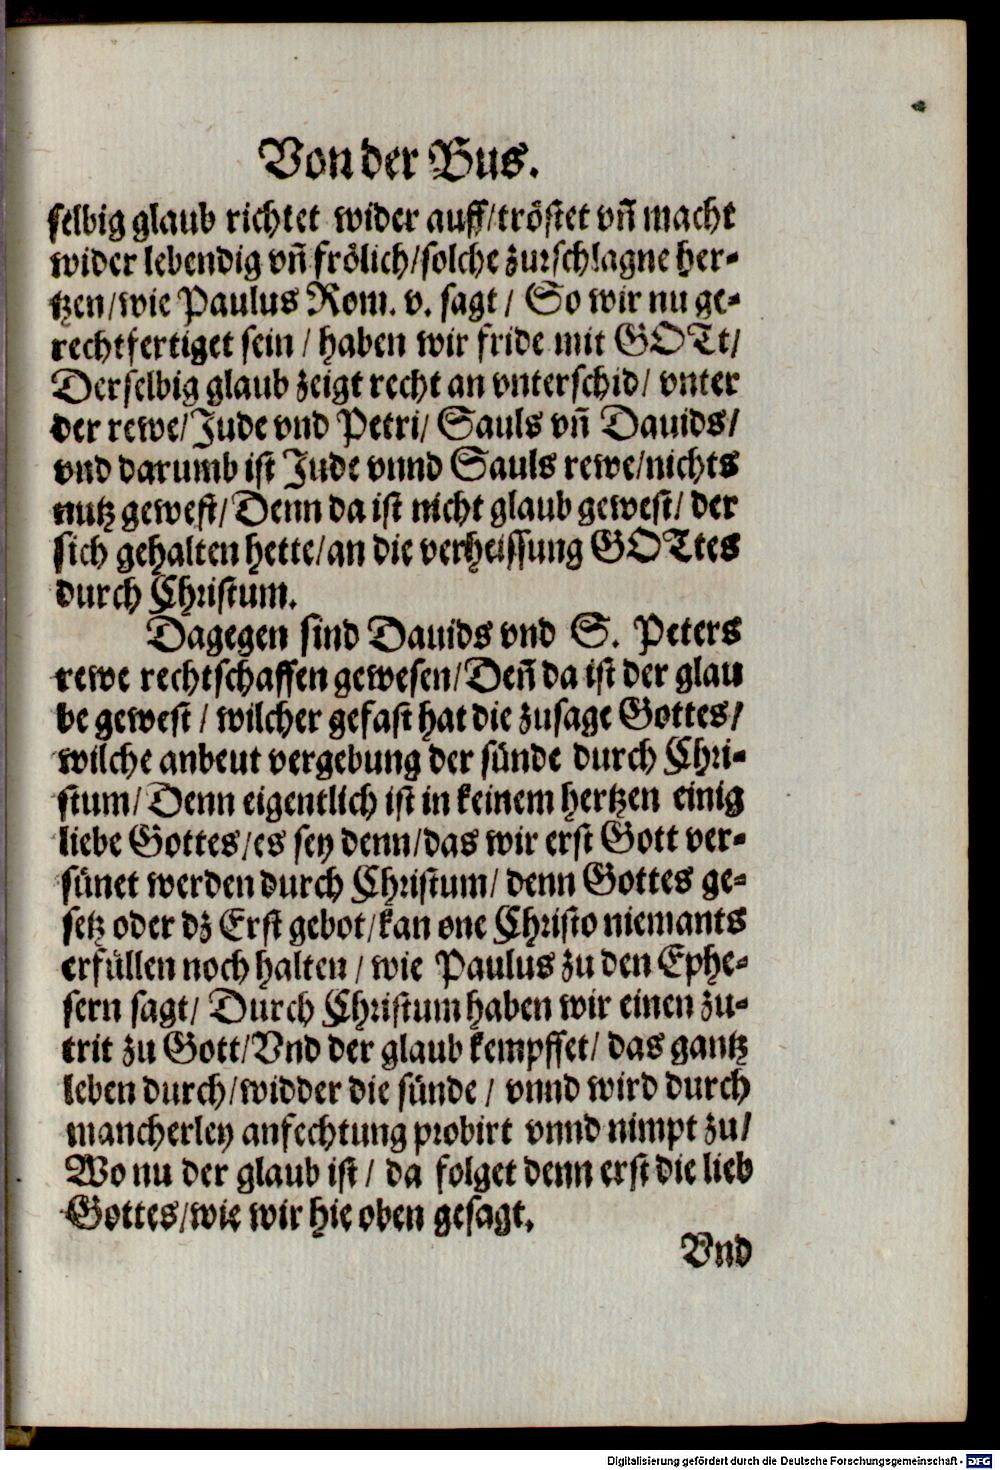 Von der Bus.
selbig glaub richtet wider auff/tröstet vn̄ macht
wider lebendig vn̄ frölich/solche zurschlagne her-
tzen/wie Paulus Rom. v. sagt / So wir nu ge-
rechtfertiget sein / haben wir fride mit GOTt/
Derselbig glaub zeigt recht an vnterschid/ vnter
der rewe/Jude vnd Petri/ Sauls vn̄ Dauids/
vnd darumb ist Jude vnnd Sauls rewe/nichts
nutz gewest/Denn da ist nicht glaub gewest/ der
sich gehalten hette/an die verheissung GOTtes
durch Christum.
Dagegen sind Dauids vnd S. Peters
rewe rechtschaffen gewesen/Den̄ da ist der glau
be gewest / wilcher gefast hat die zusage Gottes/
wilche anbeut vergebung der sünde durch Chri-
stum/Denn eigentlich ist in keinem hertzen einig
liebe Gottes/es sey denn/das wir erst Gott ver-
sünet werden durch Christum/ denn Gottes ge-
setz oder dz Erst gebot/kan one Christo niemants
erfüllen noch halten / wie Paulus zu den Ephe-
sern sagt/ Durch Christum haben wir einen zu-
trit zu Gott/Vnd der glaub kempffet/ das gantz
leben durch/widder die sünde / vnnd wird durch
mancherley anfechtung probirt vnnd nimpt zu/
Wo nu der glaub ist / da folget denn erst die lieb
Gottes/wie wir hie oben gesagt.
Vnd
Digitalisierung gefördert durch die Deutsche Forschungsgemeinschaft - DFG